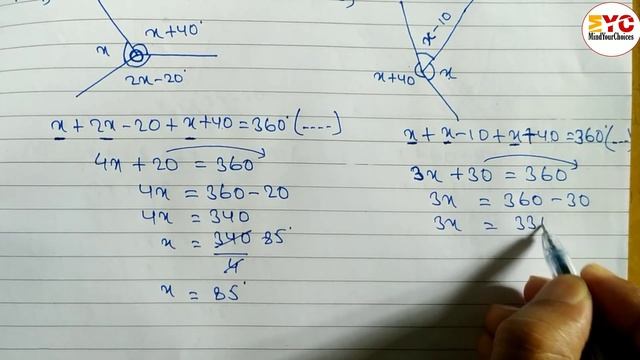 x+40°
x
2x-20°
x+2x-20+x+40=360°(....)
4x+20 = 360
4x = 360-20
4x = 340
x = 340 85°
4
x = 85°
x-10
x+40°
x
x+x-10+x+40=360°(...)
3x+30 = 360
3x = 360-30
3x = 33
MYC
MindYourChoices